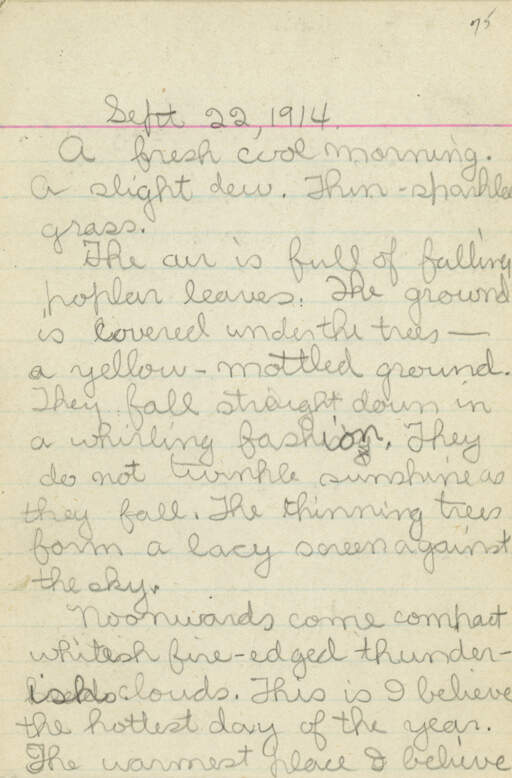 75
Sept 22, 1914.
A fresh cool morning.
A slight dew. Thin-sparkled
grass.
The air is full of falling
poplar leaves. The ground
is covered under the trees —
a yellow-mottled ground.
They fall straight down in
a whirling fashion. They
do not twinkle sunshine as
they fall. The thinning trees
form a lacy screen against
the sky.
Noonwards come compact
whitish fire-edged thunder-
clouds. This is I believe
the hottest day of the year.
The warmest place I believe